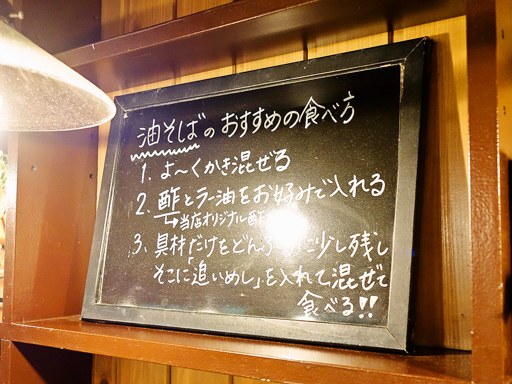 油そばのおすすめの食べ方
1. よ〜くかき混ぜる
2. 酢とラー油をお好みで入れる
→当店オリジナル酢
3. 具材だけをどんぶりに少し残し
そこに「追いめし」を入れて混ぜて
食べる!!